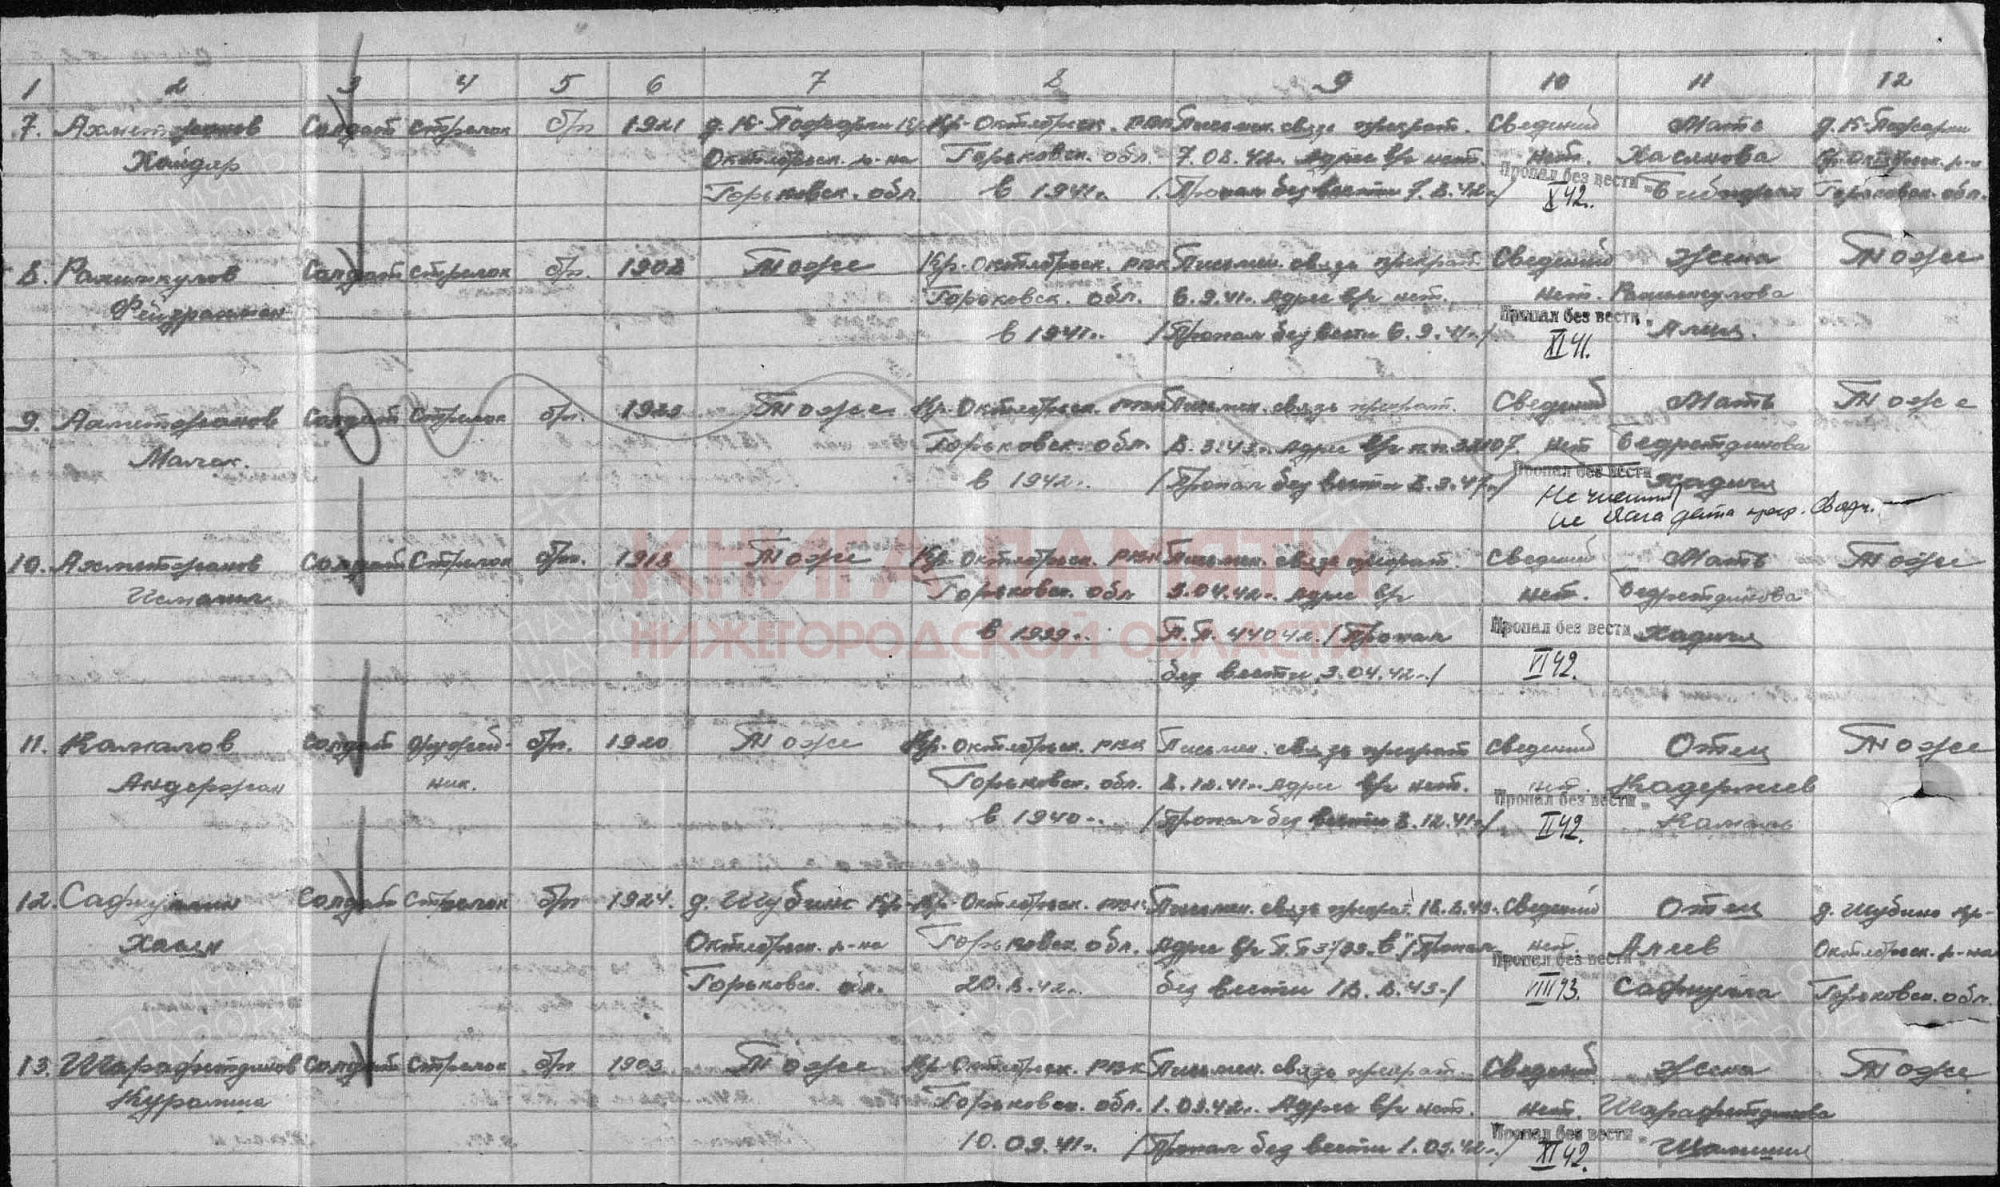 1 2 3 4 5 6 7 8 9 10 11 12
7. Ахметжанов Солдат стрелок б/п 1921 д. К-Пожарки Кр- Кр-Октябрьск. РВК Письмен. связь прекрат. Сведений Мать д. К-Пожарки
Хайдяр Октябрьск. р-на Горьковск. обл. 7.08.42г. Адрес в/ч нет. нет. Хасянова Кр-Октябрьск. р-н
Горьковск. обл. в 1941г. /Пропал без вести 7.8.42г./ Пропал без вести Горьковск. обл.
X 42г.
8. Рахимкулов Солдат стрелок б/п. 1908 Тоже Кр-Октябрьск. РВК Письмен. связь прекрат. Сведений Жена Тоже
Фейзрахман Горьковск. обл. 6.9.41. Адрес в/ч нет. нет. Рахимкулова
в 1941г. /Пропал без вести 6.9.41г./ Пропал без вести
XI 41.
9. Ахметжанов Солдат Стрелок б/п. Тоже Кр-Октябрьск. РВК Письмен. связь прекрат. Сведений Мать Тоже
Малек. Горьковск. обл. Адрес в/ч п.п. нет Бедретдинова
в 1942г. /Пропал без вести Пропал без вести Хадича
не дата прекр.
10. Ахметжанов Солдат Стрелок б/п. 1918 Тоже Кр-Октябрьск. РВК Письмен. связь прекрат. Сведений Мать Тоже
Исмаил Горьковск. обл 3.04.42г. Адрес в/ч нет. Бедретдинова
в 1939г. П.П. /Пропал Пропал без вести Хадича
без вести 3.04.42г./ VI 42.
11. Камалов Солдат оружей- б/п. 1920 Тоже Кр-Октябрьск. РВК Письмен. связь прекрат Сведений Отец Тоже
Андержан ник. Горьковск. обл. 8.12.41г. Адрес в/ч нет. нет. Кадермеев
в 1940г. /Пропал без вести 8.12.41г./ Пропал без вести Камаль
II 42.
12. Сафиулин Солдат Стрелок б/п 1924. д. Шубино Кр- Кр-Октябрьск. РВК Письмен. связь прекрат. 18.8.43. Сведений Отец д. Шубино Кр-
Хасян Октябрьск. р-на Горьковск. обл. Адрес в/ч П.П. /Пропал нет. Алеев Октябрьск. р-на
Горьковск. обл. 20.8.42г. без вести 18.8.43г./ Пропал без вести Сафиулла Горьковск. обл.
VIII 43.
13. Шарафетдинов Солдат Стрелок б/п 1903 Тоже Кр-Октябрьск. РВК Письмен. связь прекрат. Сведений Жена Тоже
Горьковск. обл. 1.09.42г. Адрес в/ч нет. нет. Шарафетдинова
10.09.41г. /Пропал без вести 1.09.42г./ Пропал без вести
XI 42.
КНИГА ПАМЯТИ
НИЖЕГОРОДСКОЙ ОБЛАСТИ